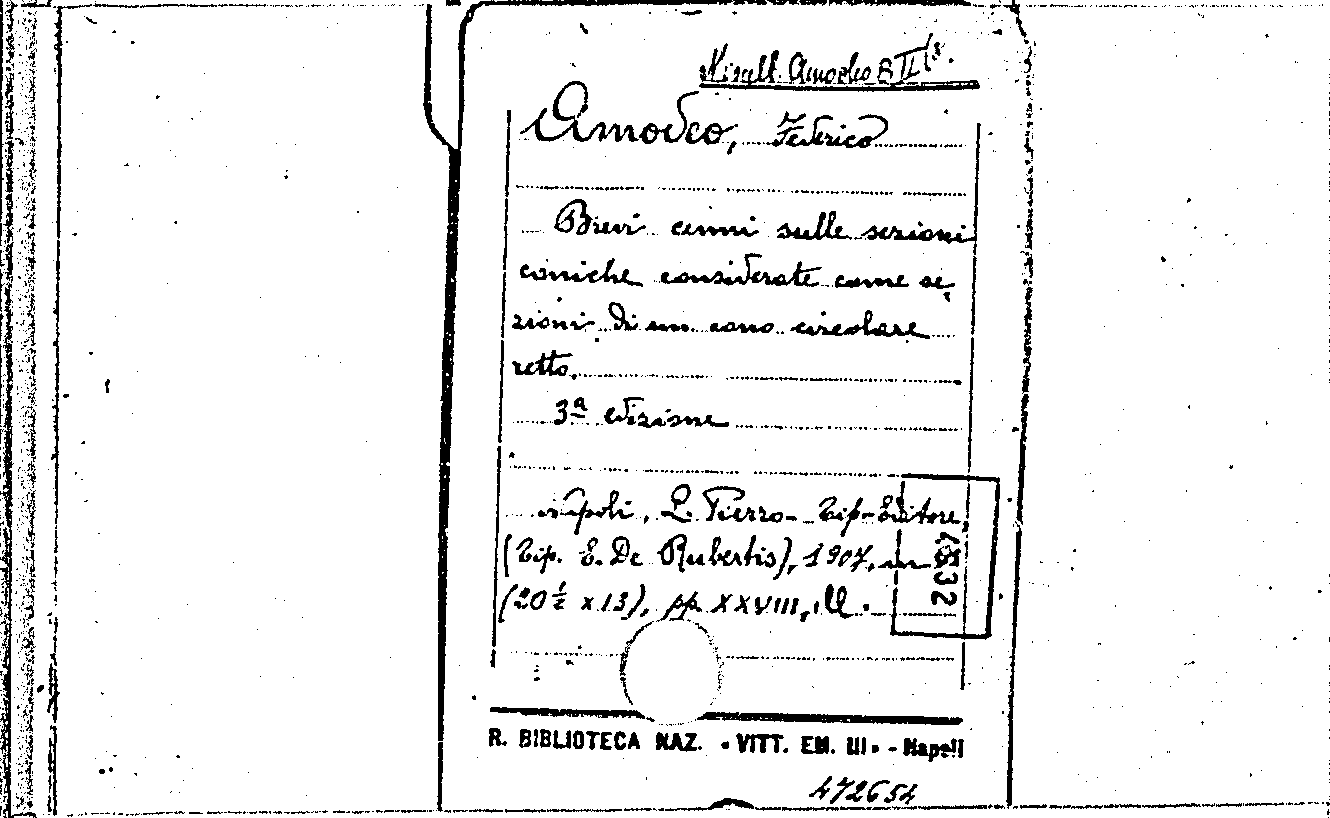 Miscell. Amodeo B II (8.
Amodeo, Federico
Brevi cenni sulle sezioni
coniche considerate come se-
zioni di un cono circolare
retto.
3ª edizione
Napoli, L. Pierro - Tip-Editore,
(Tip. E. De Rubertis), 1907, in
(20 ½ x 13), pp. XXVIII, ill.
4532
R. BIBLIOTECA NAZ. «VITT. EM. III» - Napoli
472654